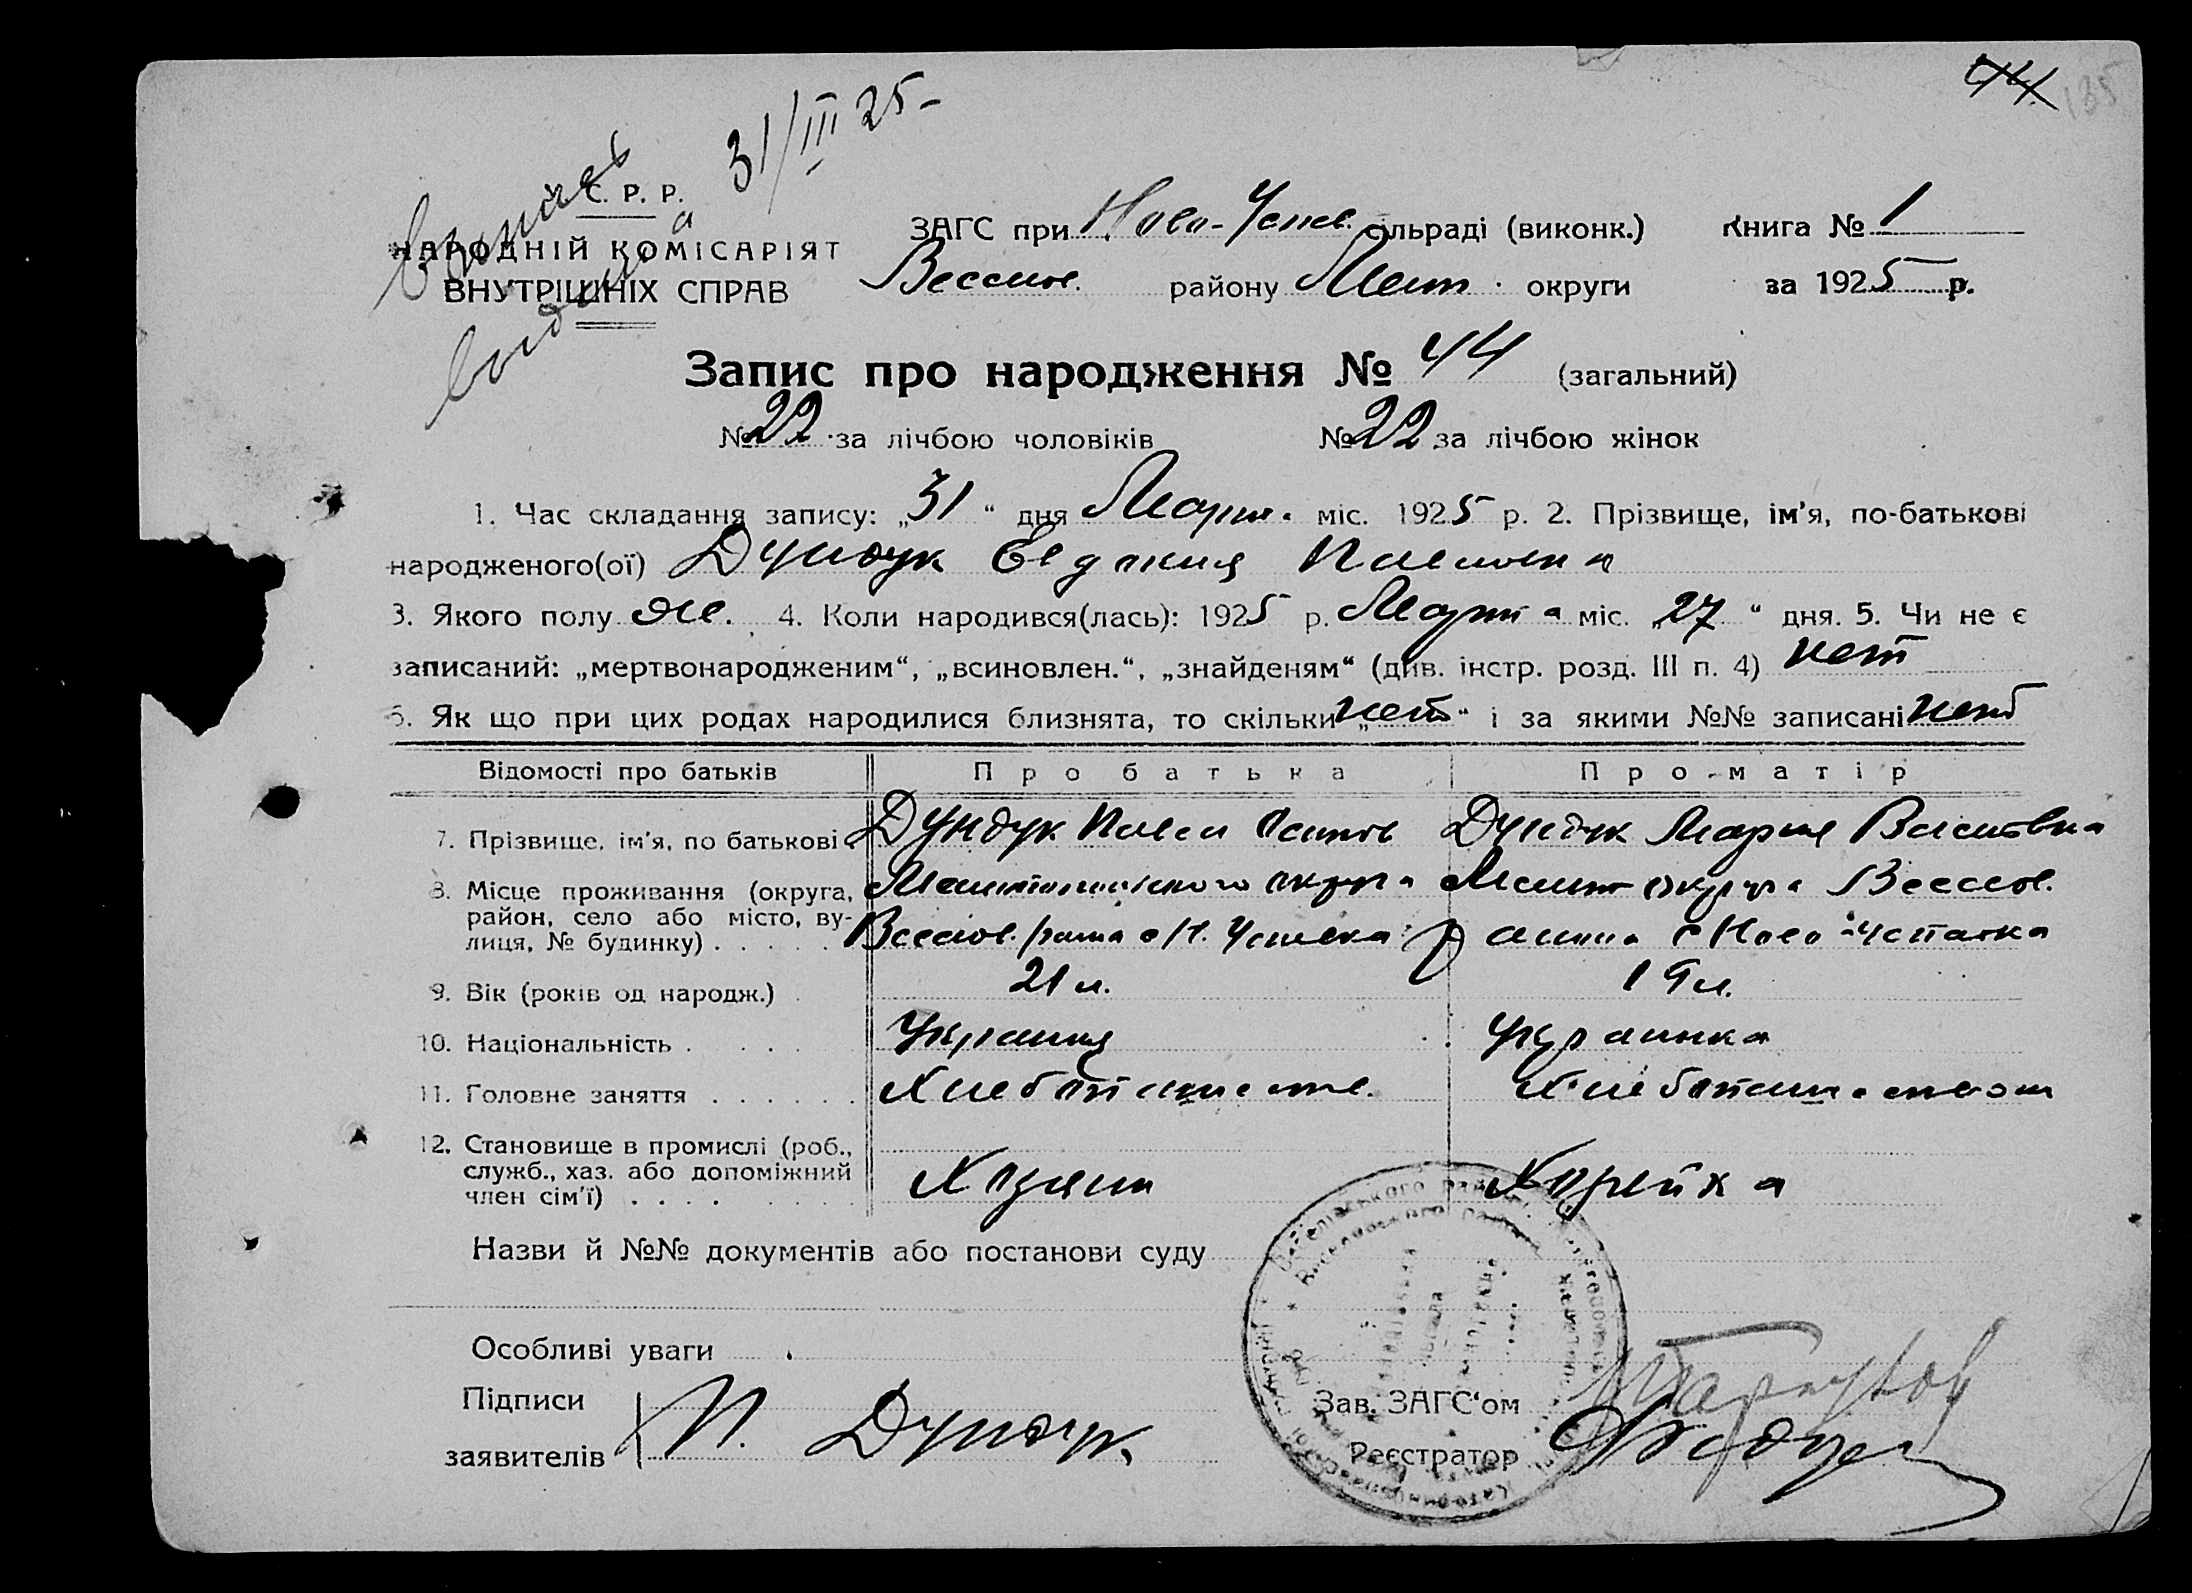 44 135
31/III 25-
выпись
выдана
С. Р. Р.
НАРОДНІЙ КОМІСАРІЯТ
ВНУТРІШНІХ СПРАВ
ЗАГС при Ново-Успев. сільраді (виконк.) Книга № 1
Веселов. району Мелит. округи за 1925 р.
Запис про народження № 44 (загальний)
№ 22 за лічбою чоловіків № 22 за лічбою жінок
1. Час складання запису: „31“ дня Марта міс. 1925 р. 2. Прізвище, ім'я, по-батькові
народженого(ої) Дундук Евдокия Павловна
3. Якого полу же. 4. Коли народився(лась): 1925 р. Марта міс. „27“ дня. 5. Чи не є
записаний: „мертвонародженим“, „всиновлен.“, „знайденям“ (див. інстр. розд. III п. 4) нет
6. Як що при цих родах народилися близнята, то скільки „нет“ і за якими №№ записані нет
Відомості про батьків Про батька Про матір
7. Прізвище, ім'я, по батькові. Дундук Павел Осипов Дундук Мария
8. Місце проживання (округа, Мелитопольского округа Мелит округа Веселов.
район, село або місто, ву-
лиця, № будинку) . . . . . Веселов. раена с Н. Успевка раина с Ново Успевка
9. Вік (років од народж.) . 21 л. 19 л.
10. Національність . . . . Украинец Украинка
11. Головне заняття . . . . . . Хлебопашеств. Хлебопашеством
12. Становище в промислі (роб.,
служб., хаз. або допоміжний Хозяин Хозяйка
член сім'ї) . . . . . . . .
Назви й №№ документів або постанови суду
Особливі уваги
Підписи Зав. ЗАГС'ом
заявителів П. Дундук Реєстратор